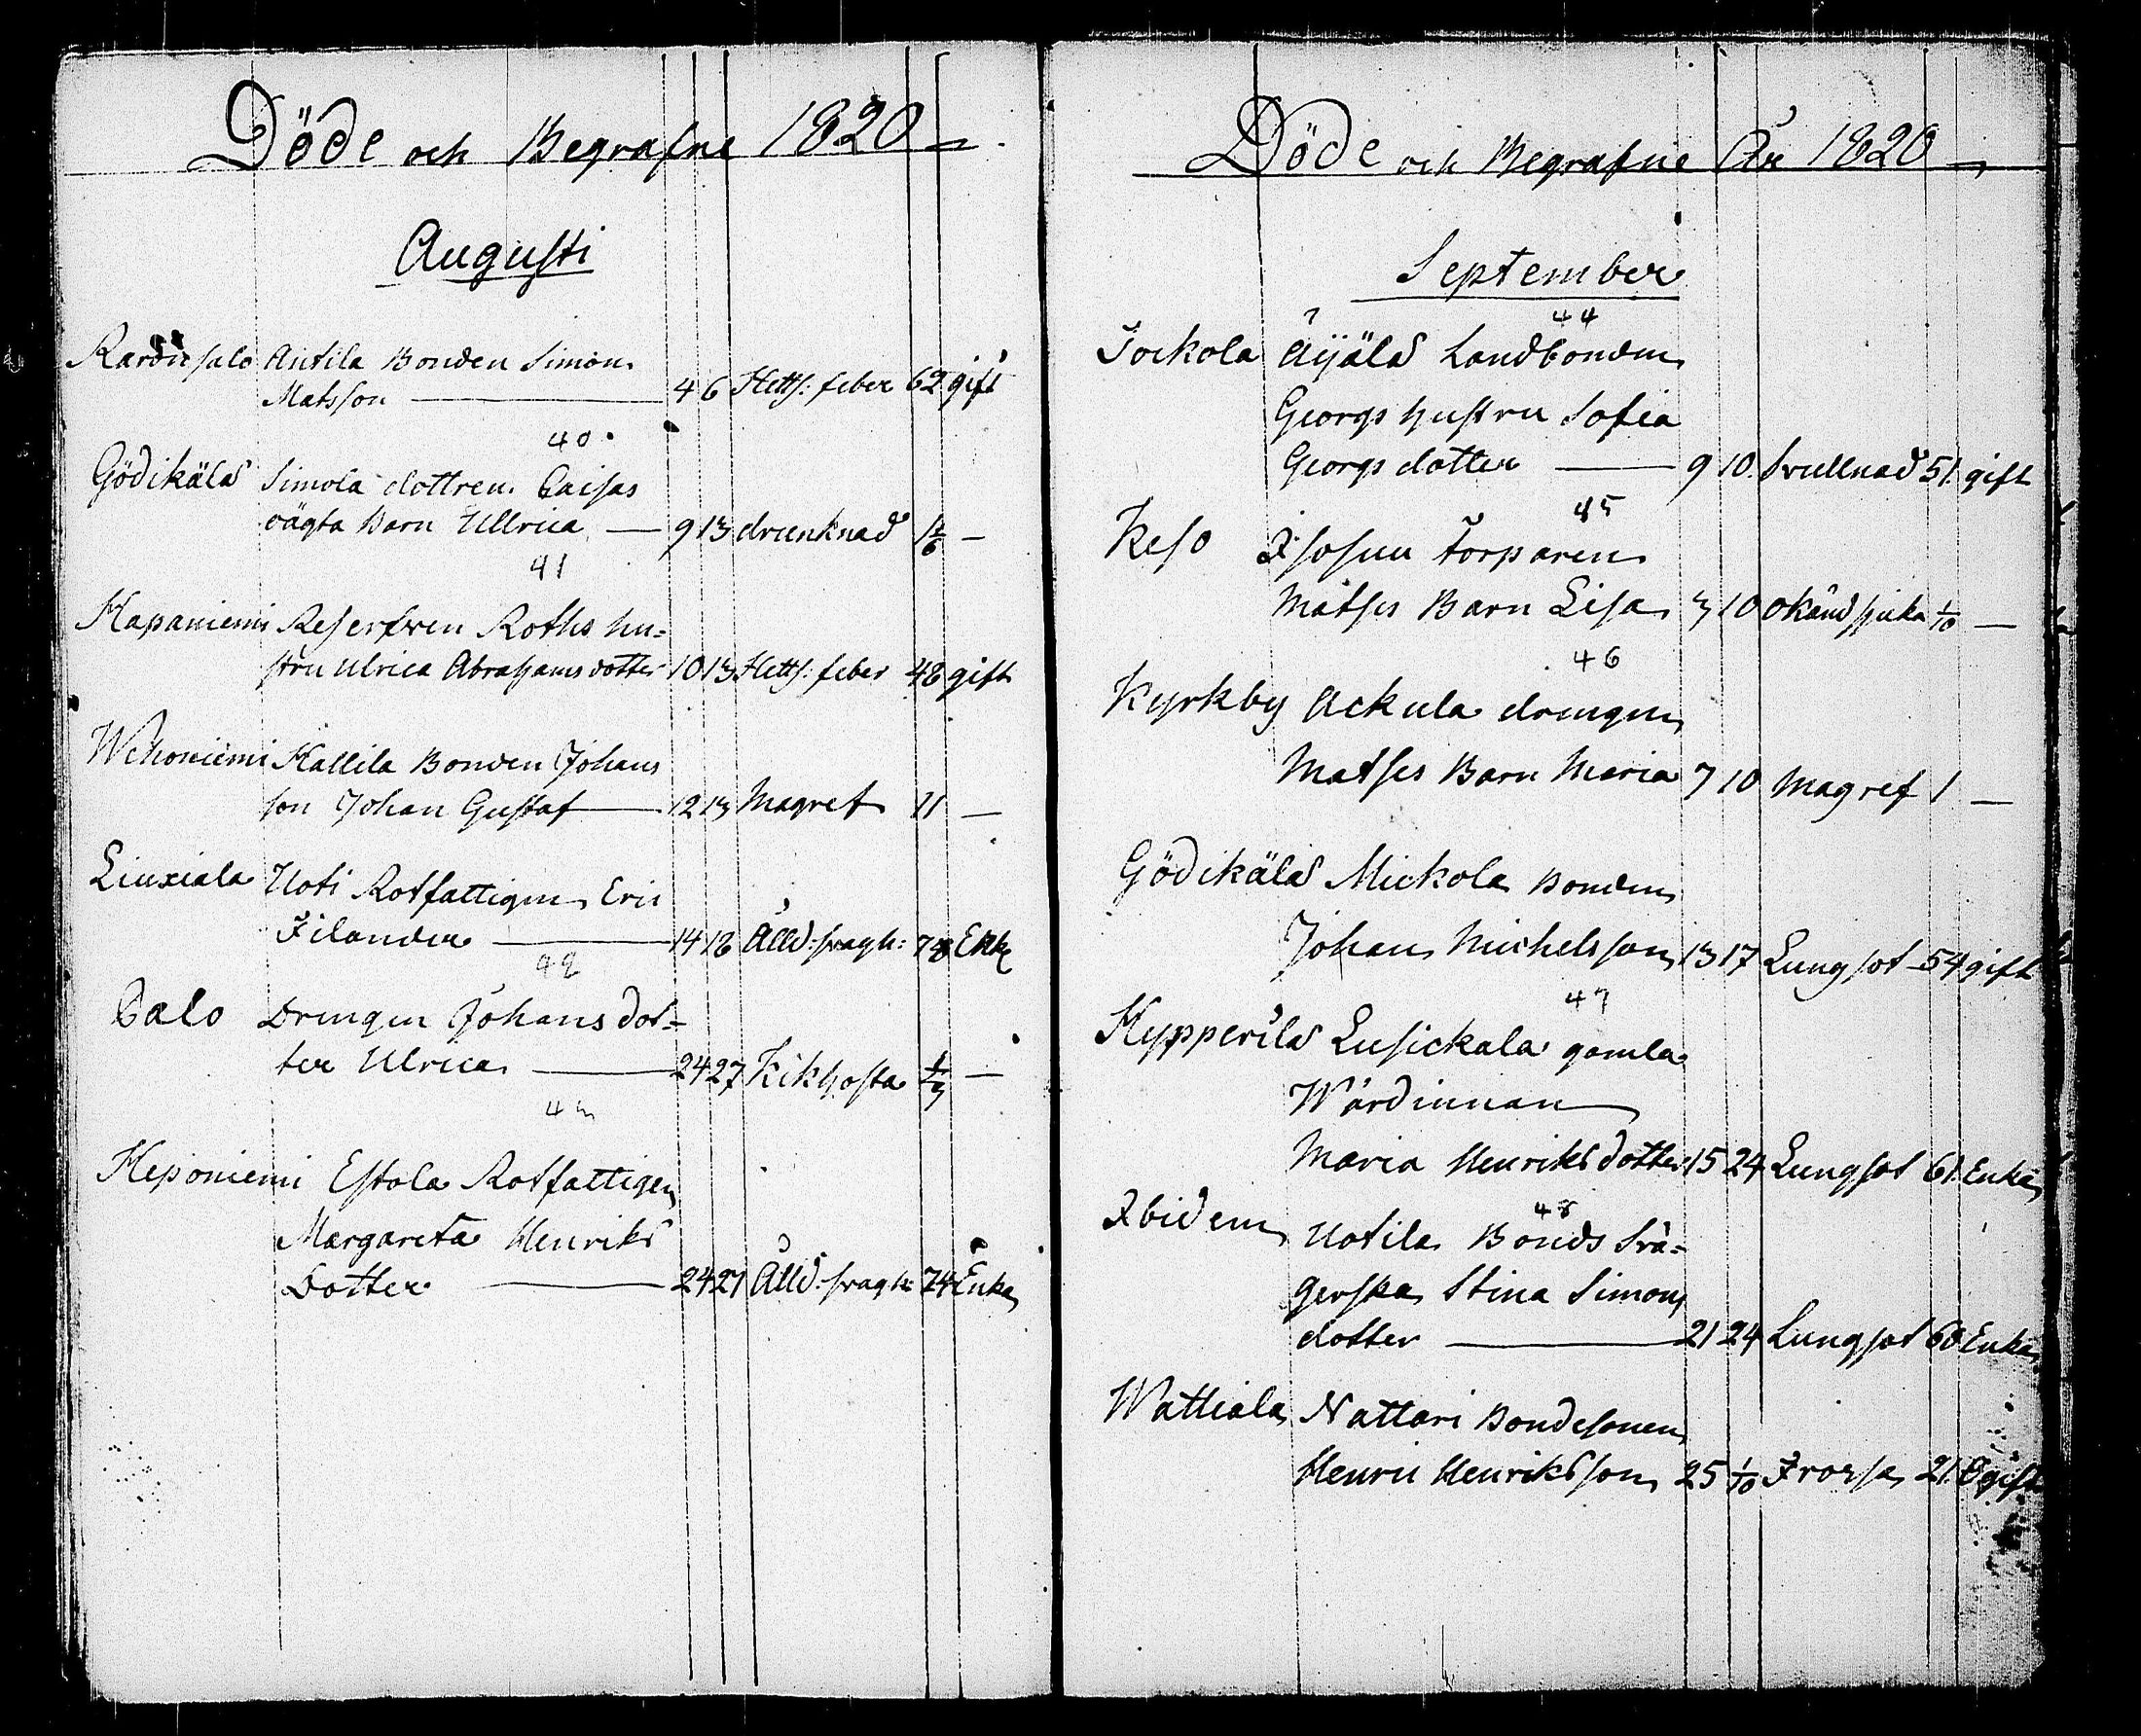 Döde och Begrafne 1820
Augusti
Antila Bonden Simon
Matsson 4 6 Hetts: feber 62 gift
40
Gödikälä Simola dottren Caisas
oägta Barn Ullrica 9 13 drunknad 1/6 —
41
Hapaniemi Reserfven Roths hu=
stru Ulrica Abrahamsdotter 10 13 Hetts: feber 48 gift
Wehoniemi Kallila Bonden Johans
son Johan Gustaf 12 13 Magref 11 —
Liuxiala Uoti Rotfattigen Eric
Filander 14 18 Ålld: svagh: 78 Enkl
42
Salo Drengen Johans dot=
ter Ulrica 24 27 Kikhosta 1/3 —
43
Heponiemi Estola Rotfattigen
Margareta Henriks
Dotter 24 27 Ålld: svagh: 74 Enka
Döde och Begrafne År 1820
September
44
Jockola Äijälä Landbonden
Georgs hustru Sofia
Georgs dotter 9 10. Svullnad 51. gift
45
Keso Isosuu Torparen
Matses Barn Lisa 3 10 okänd sjuka 1/10 —
46
Kyrkby Ackula drengen
Matses Barn Maria 7 10 Magref 1 —
Gödikälä Mickola Bonden
Johan Michelsson 13 17 Lungsot 54 gift
47
Hypperilä Lusickala gamla
Wärdinnan
Maria Henriksdotter 15 24 Lungsot 61. Enka
48
Ibidem Uotila Bonds Svä=
gerska Stina Simons
dotter 21 24 Lungsot 60 Enka
Wattiala Nattari Bondesonen
Henric Henriksson 25 1/10 Frossa 21. Ogift